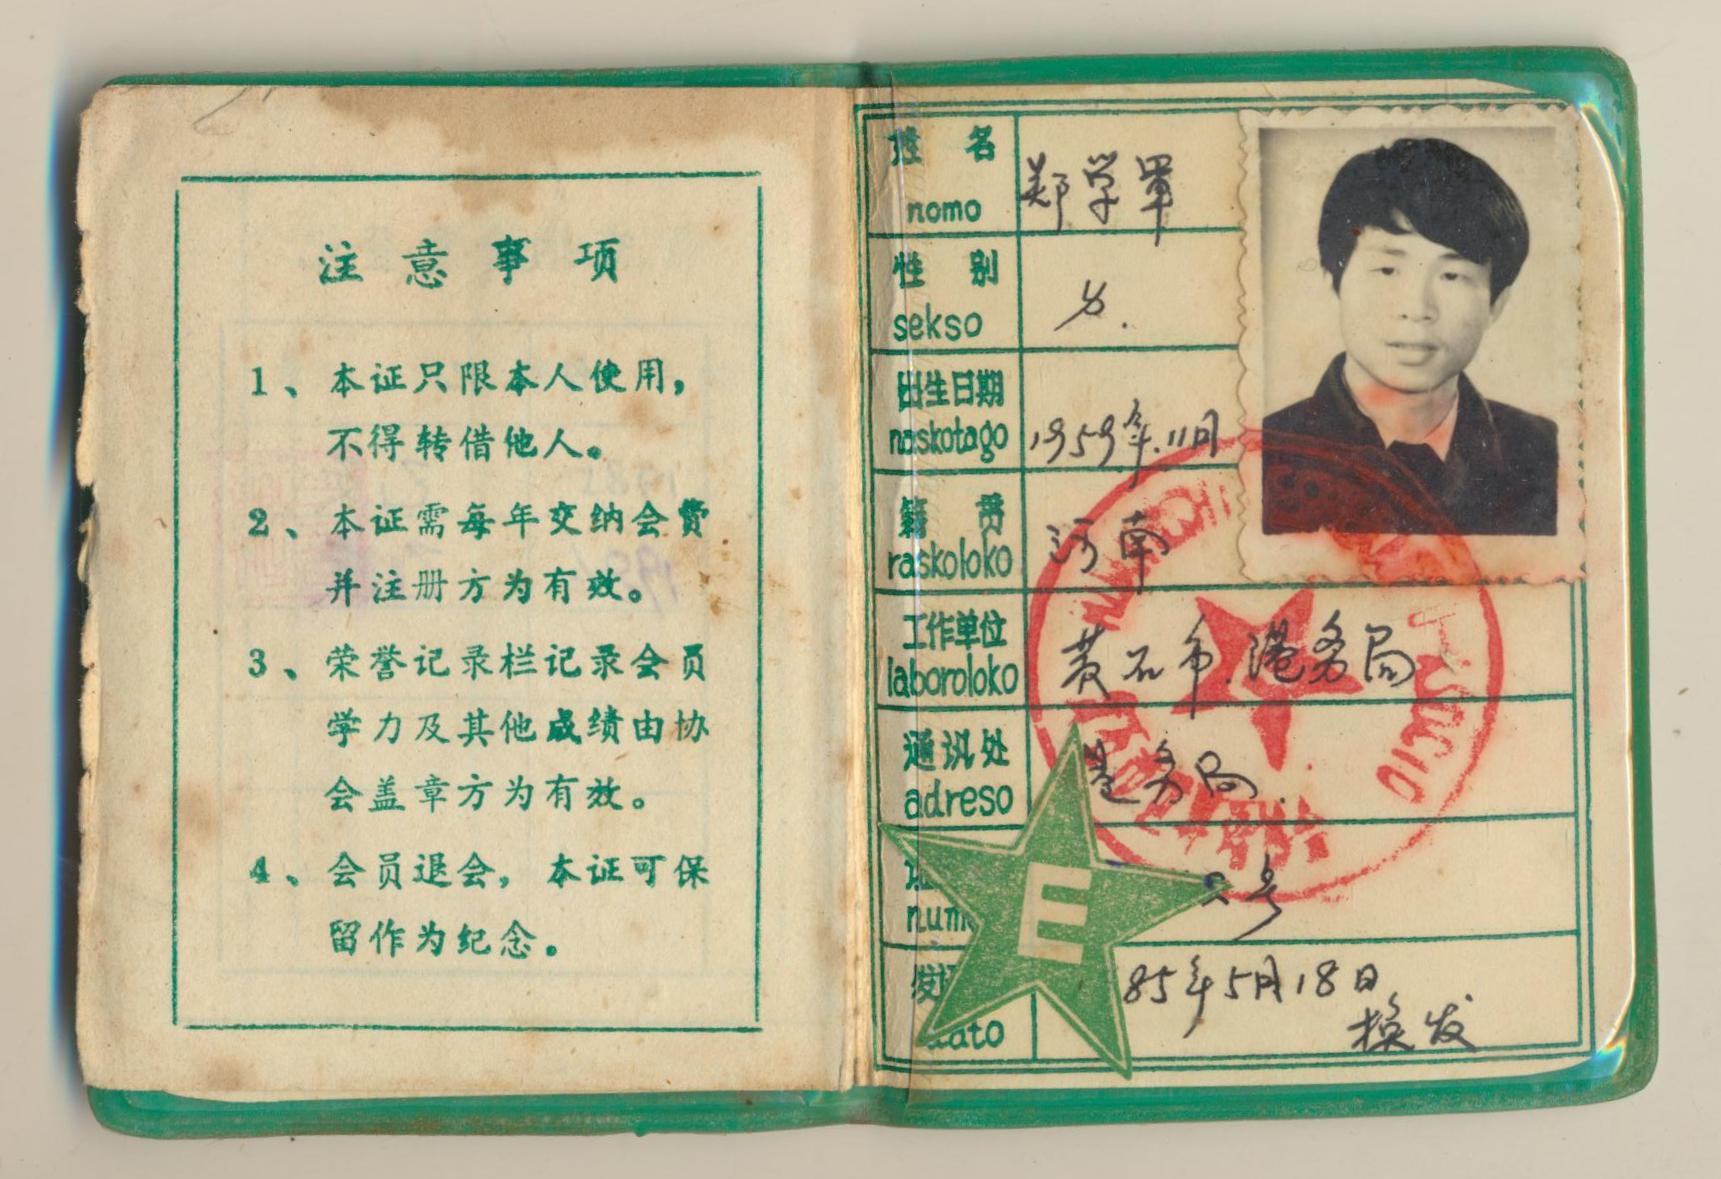 注意事项
1、本证只限本人使用，
不得转借他人。
2、本证需每年交纳会费
并注册方为有效。
3、荣誉记录栏记录会员
学力及其他成绩由协
会盖章方为有效。
4、会员退会，本证可保
留作为纪念。
姓名
nomo
郑学军
性别
sekso
男.
出生日期
naskotago
1959年.11月
籍贯
raskoloko
河南
工作单位
laboroloko
黄石市.港务局
通讯处
adreso
港务局.
号
E
85年5月18日
换发